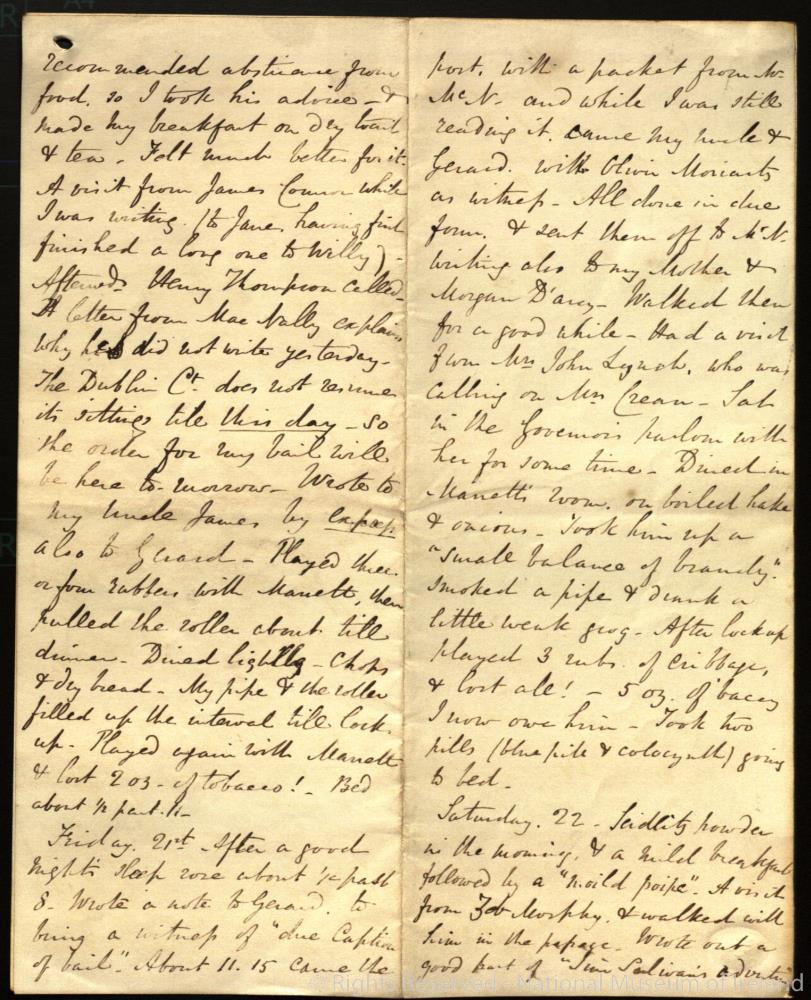 recommended abstinence from
food, so I took his advice - &
made my breakfast on dry toast
& tea - Felt much better for it.
A visit from James Connor while
I was writing (to Jane, having first
finished a long one to Willy) -
Afterwds Henry Thompson called -
A letter from MacNally explains
why he did not write yesterday -
The Dublin Ct. does not resume
its sittings till this day - so
the order for my bail will
be here to-morrow - Wrote to
my Uncle James by express
also to Gerard - Played three
or four rubbers with Manett, then
pulled the roller about till
dinner - Dined lightly - Chops
& dry bread - My pipe & the roller
filled up the interval till lock-
up - Played again with Manett
& lost 2 oz - of tobacco! - Bed
about ½ past 11 -
Friday. 21st After a good
night's sleep rose about ½ past
8 - Wrote a note to Gerard, to
bring a witness of "due Caption
of bail". About 11.15 came the
post, with a packet from Mr
McN - and while I was still
reading it, came my uncle &
Gerard, with Oliver Moriarty
as witness - All done in due
form, & sent them off to McN -
writing also to my Mother &
Morgan D'arcy - Walked then
for a good while - Had a visit
from Mrs John Lynch, who was
calling on Mrs Crean - Sat
in the Governor's parlour with
her for some time - Dined in
Manett's room, on boiled hake
& onions - Took him up a
"small balance of brandy".
Smoked a pipe & drank a
little weak grog - After lock up
played 3 rubs. of cribbage,
& lost all! - 5 oz. of baccy
I now owe him - Took two
pills (blue pill & colocynth) going
to bed -
Saturday. 22 - Seidlitz powder
in the morning, & a mild breakfast
followed by a "moild poipe". A visit
from Murphy, & walked with
him in the passage - Wrote out a
good part of "Jim Sulivan's adventu
© Rights Reserved - National Museum of Ireland